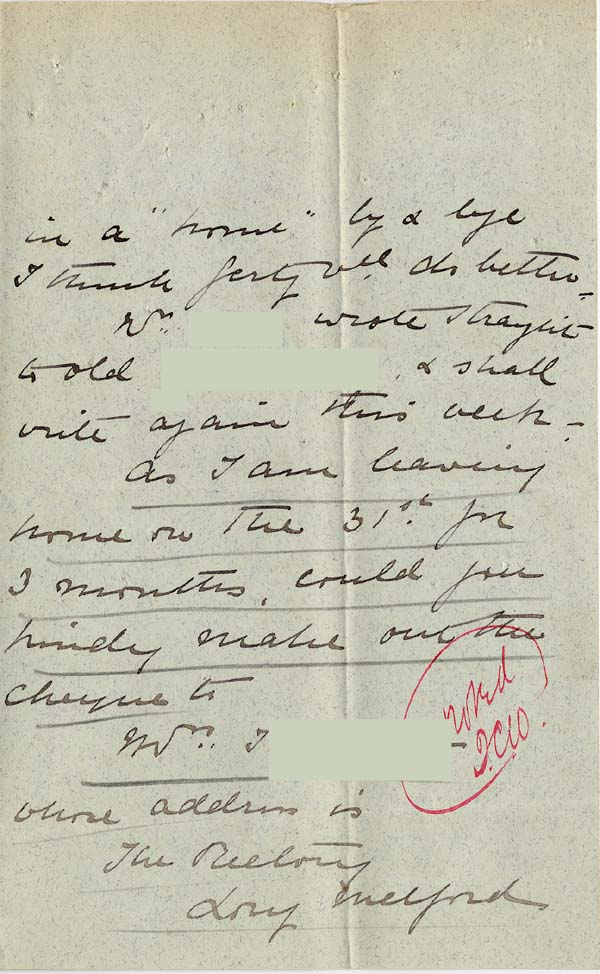 in a "home" by & bye
I think Gerty will do better -
wrote straight
to old , & shall
write again this week -
As I am leaving
home on the 31st. for
3 months, could you
kindly make out the
cheque to
Mrs. J
whose address is
The Rectory
Long Melford
Noted